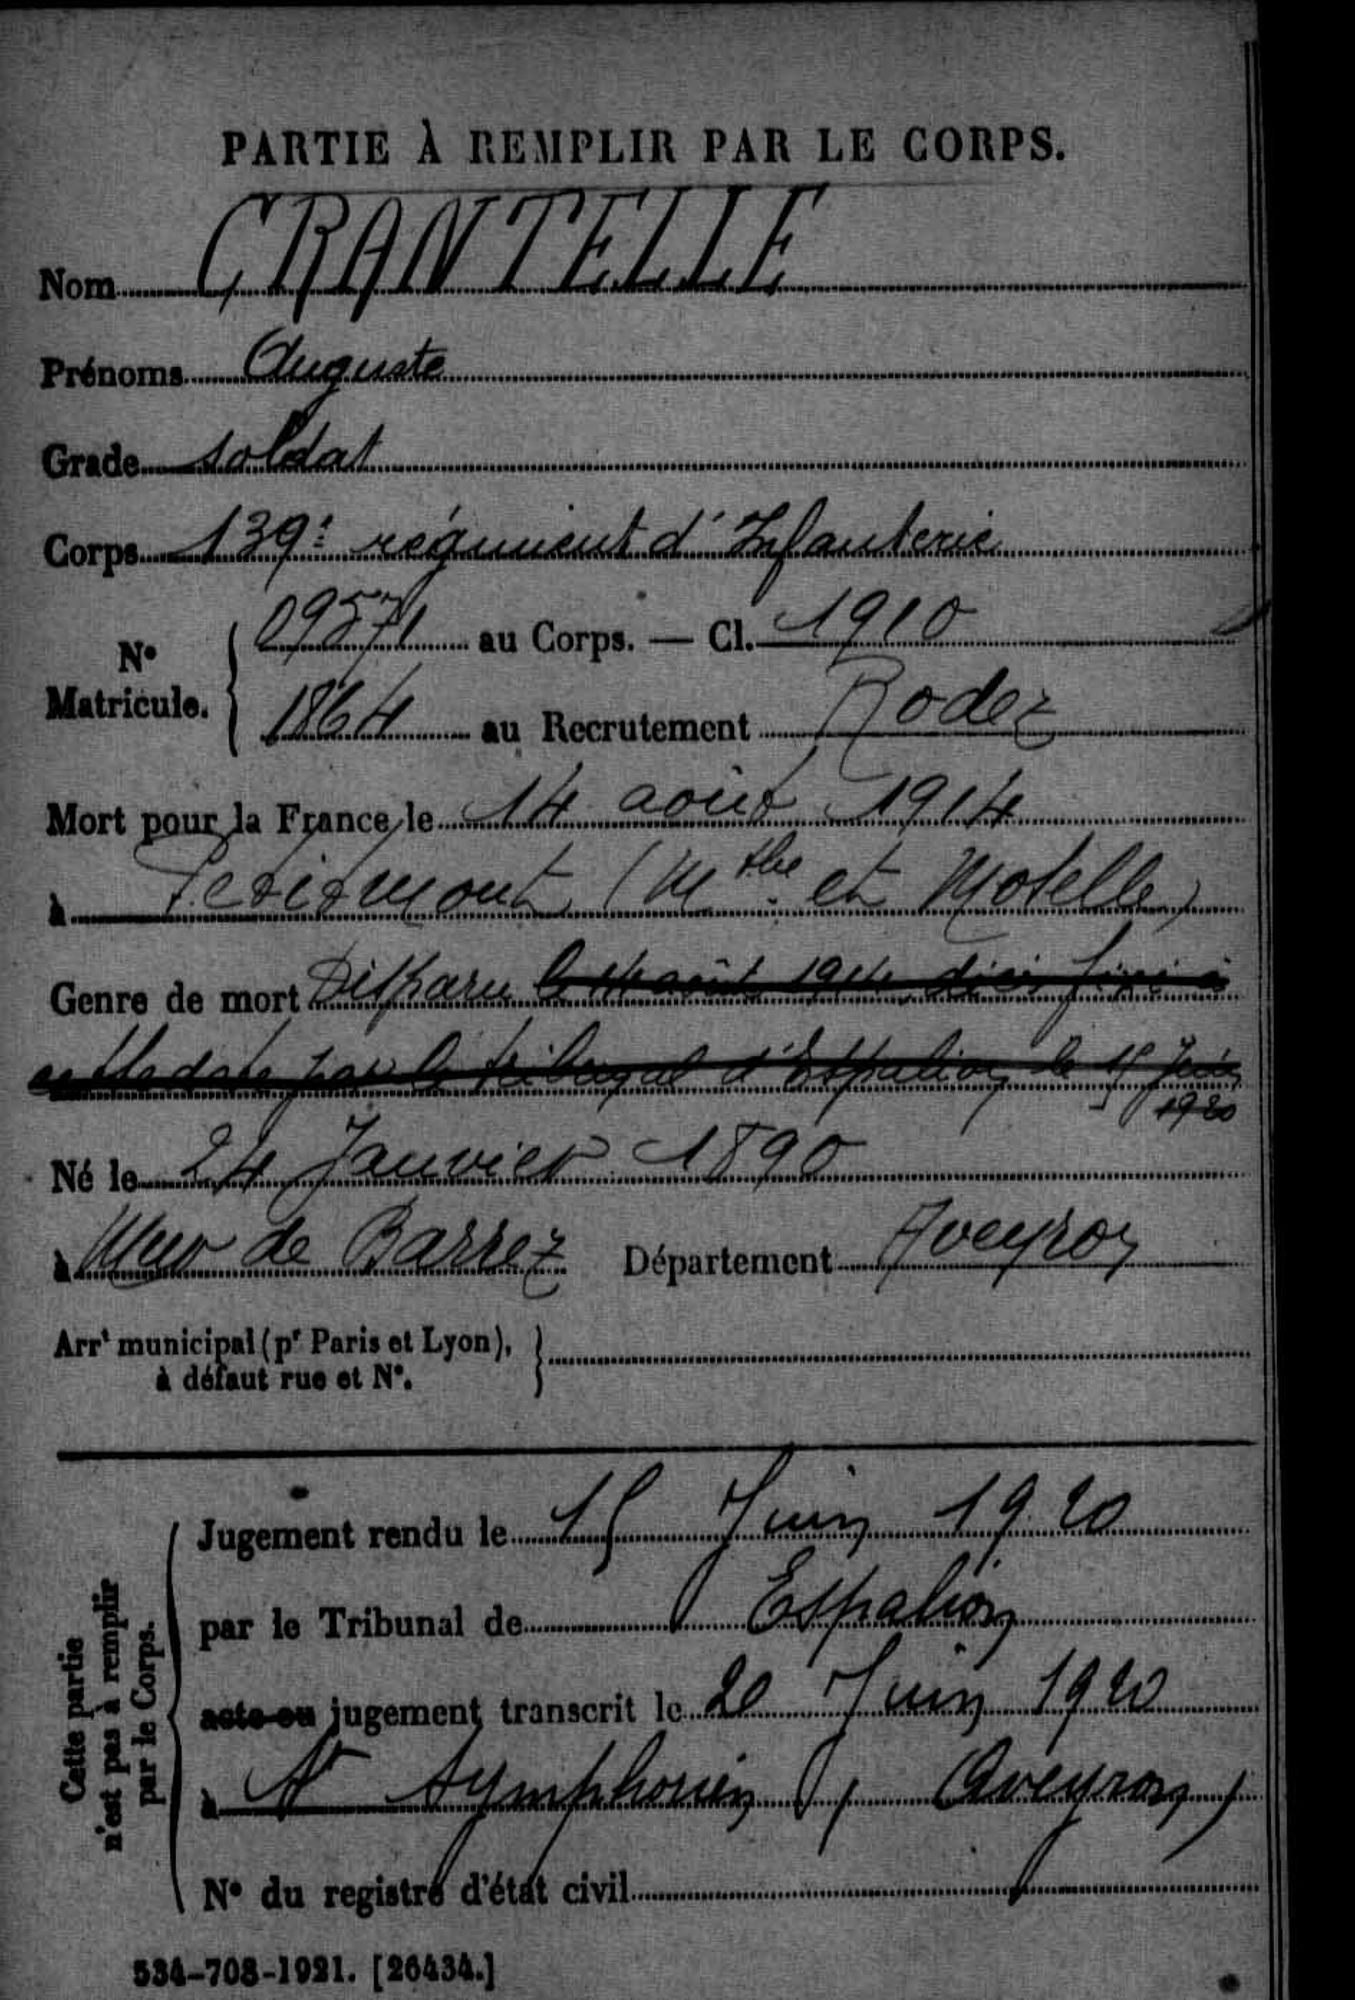 PARTIE À REMPLIR PAR LE CORPS.
Nom CRANTELLE
Prénoms Auguste
Grade soldat
Corps 139e régiment d'Infanterie
N° Matricule. 09571 au Corps. — Cl. 1910
1864 au Recrutement Rodez
Mort pour la France le 14 août 1914
à Petitmont (Mthe et Moselle)
Genre de mort Disparu le 14 août 1914, décès fixé à
cette date par le tribunal d'Espalion le 15 Juin
1920
Né le 24 Janvier 1890
à Mur de Barrez Département Aveyron
Arrt municipal (pr Paris et Lyon),
à défaut rue et N°.
Cette partie
n'est pas à remplir
par le Corps.
Jugement rendu le 15 Juin 1920
par le Tribunal de Espalion
acte ou jugement transcrit le 20 Juin 1920
à St Symphorien (Aveyron)
N° du registre d'état civil
534-708-1921. [26434.]